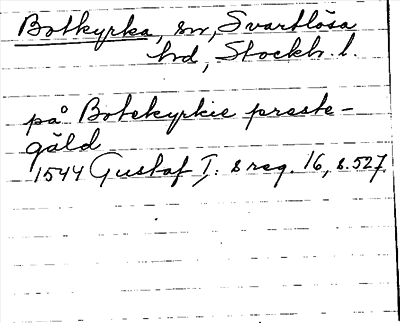 Botkyrka, sn, Svartlösa
hd, Stockh. l.
på Botekyrkie preste-
gäld
1544 Gustaf I: s reg. 16, s. 527.